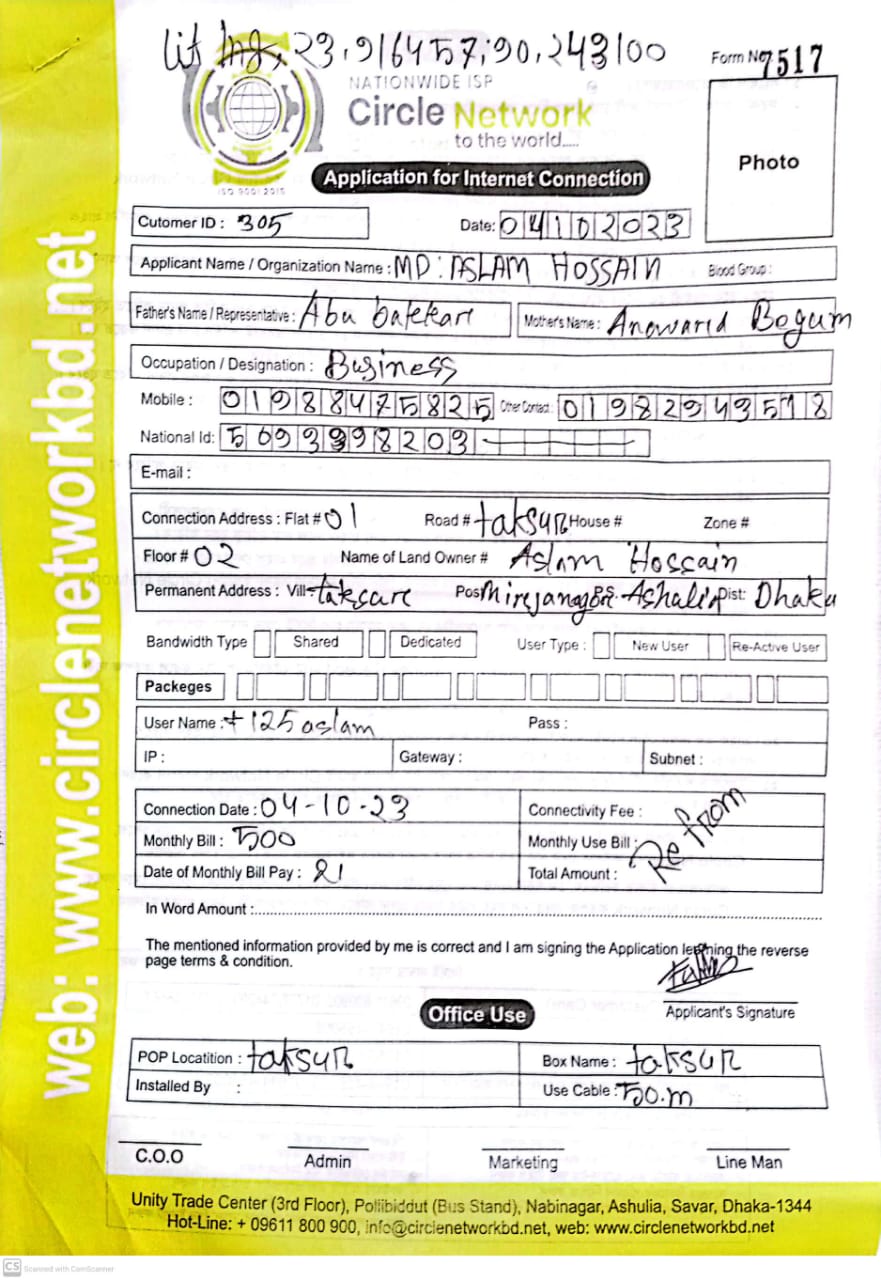 Lit Ing, 23.916457,90.243100
Form No 7517
NATIONWIDE ISP
Circle Network
to the world....
ISO 9001:2015
Application for Internet Connection
Photo
Cutomer ID : 305 Date: 04102023
Applicant Name / Organization Name : MD: ASLAM HOSSAIN Blood Group :
Father's Name / Representative : Abu bakkar Mother's Name : Anowara Begum
Occupation / Designation : Business
Mobile : 01988475825 Other Contact : 01982943578
National Id: 8203
E-mail :
Connection Address : Flat # 01 Road # taksur House # Zone #
Floor # 02 Name of Land Owner # Aslam Hossain
Permanent Address : Vill- taksure Pos Mirejanagor P.S. Ashalia Dist: Dhaka
Bandwidth Type Shared Dedicated User Type : New User Re-Active User
Packeges
User Name : t125aslam Pass :
IP : Gateway : Subnet :
Connection Date : 04-10-23 Connectivity Fee :
Monthly Bill : 500 Monthly Use Bill :
Re from
Date of Monthly Bill Pay : 21 Total Amount :
In Word Amount :
The mentioned information provided by me is correct and I am signing the Application lerning the reverse
page terms & condition.
Applicant's Signature
Office Use
POP Locatition : taksur Box Name : taksur
Installed By : Use Cable : 50.m
C.O.O Admin Marketing Line Man
Unity Trade Center (3rd Floor), Pollibiddut (Bus Stand), Nabinagar, Ashulia, Savar, Dhaka-1344
Hot-Line: + 09611 800 900, info@circlenetworkbd.net, web: www.circlenetworkbd.net
web: www.circlenetworkbd.net
CS Scanned with CamScanner